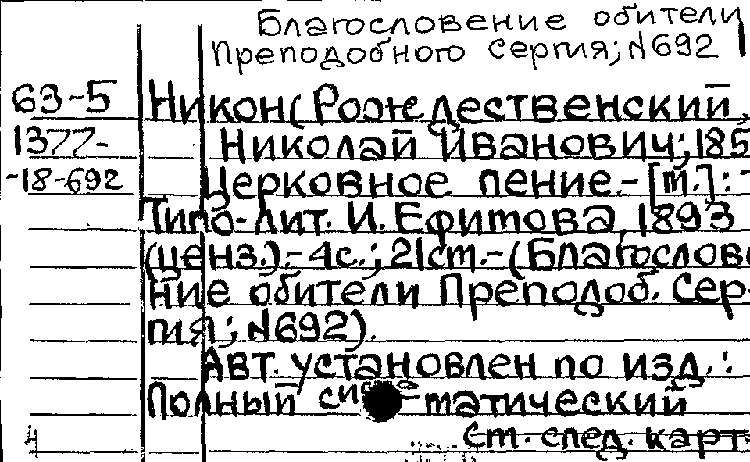 Благословение обители
Преподобного Сергия; N692
63-5 Никон (Рождественский,
1377- Николай Иванович; 185
-18-692 Церковное пение.- [м.]: -
Типо-лит. И. Ефимова, 1893
(ценз.).- 4с.; 21см.-(Благослове
ние обители Преподоб. Сер-
гия; N692).
Авт. установлен по изд.:
Полный систематический
См. след. карт